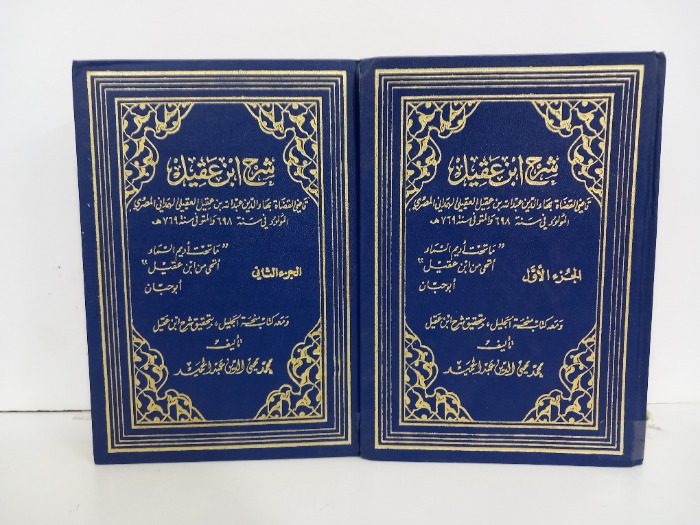 شرح ابن عقيل
قاضي القضاة بهاء الدين عبد الله بن عقيل العقيلي الهمداني المصري
المولود في سنة ٦٩٨ والمتوفى سنة ٧٦٩ هـ
"ما تحت أديم السماء
أنحى من ابن عقيل"
أبو حيان
الجزء الأول
ومعه كتاب منحة الجليل، بتحقيق شرح ابن عقيل
تأليف
محمد محيي الدين عبد الحميد
شرح ابن عقيل
قاضي القضاة بهاء الدين عبد الله بن عقيل العقيلي الهمداني المصري
المولود في سنة ٦٩٨ والمتوفى سنة ٧٦٩ هـ
"ما تحت أديم السماء
أنحى من ابن عقيل"
أبو حيان
الجزء الثاني
ومعه كتاب منحة الجليل، بتحقيق شرح ابن عقيل
تأليف
محمد محيي الدين عبد الحميد